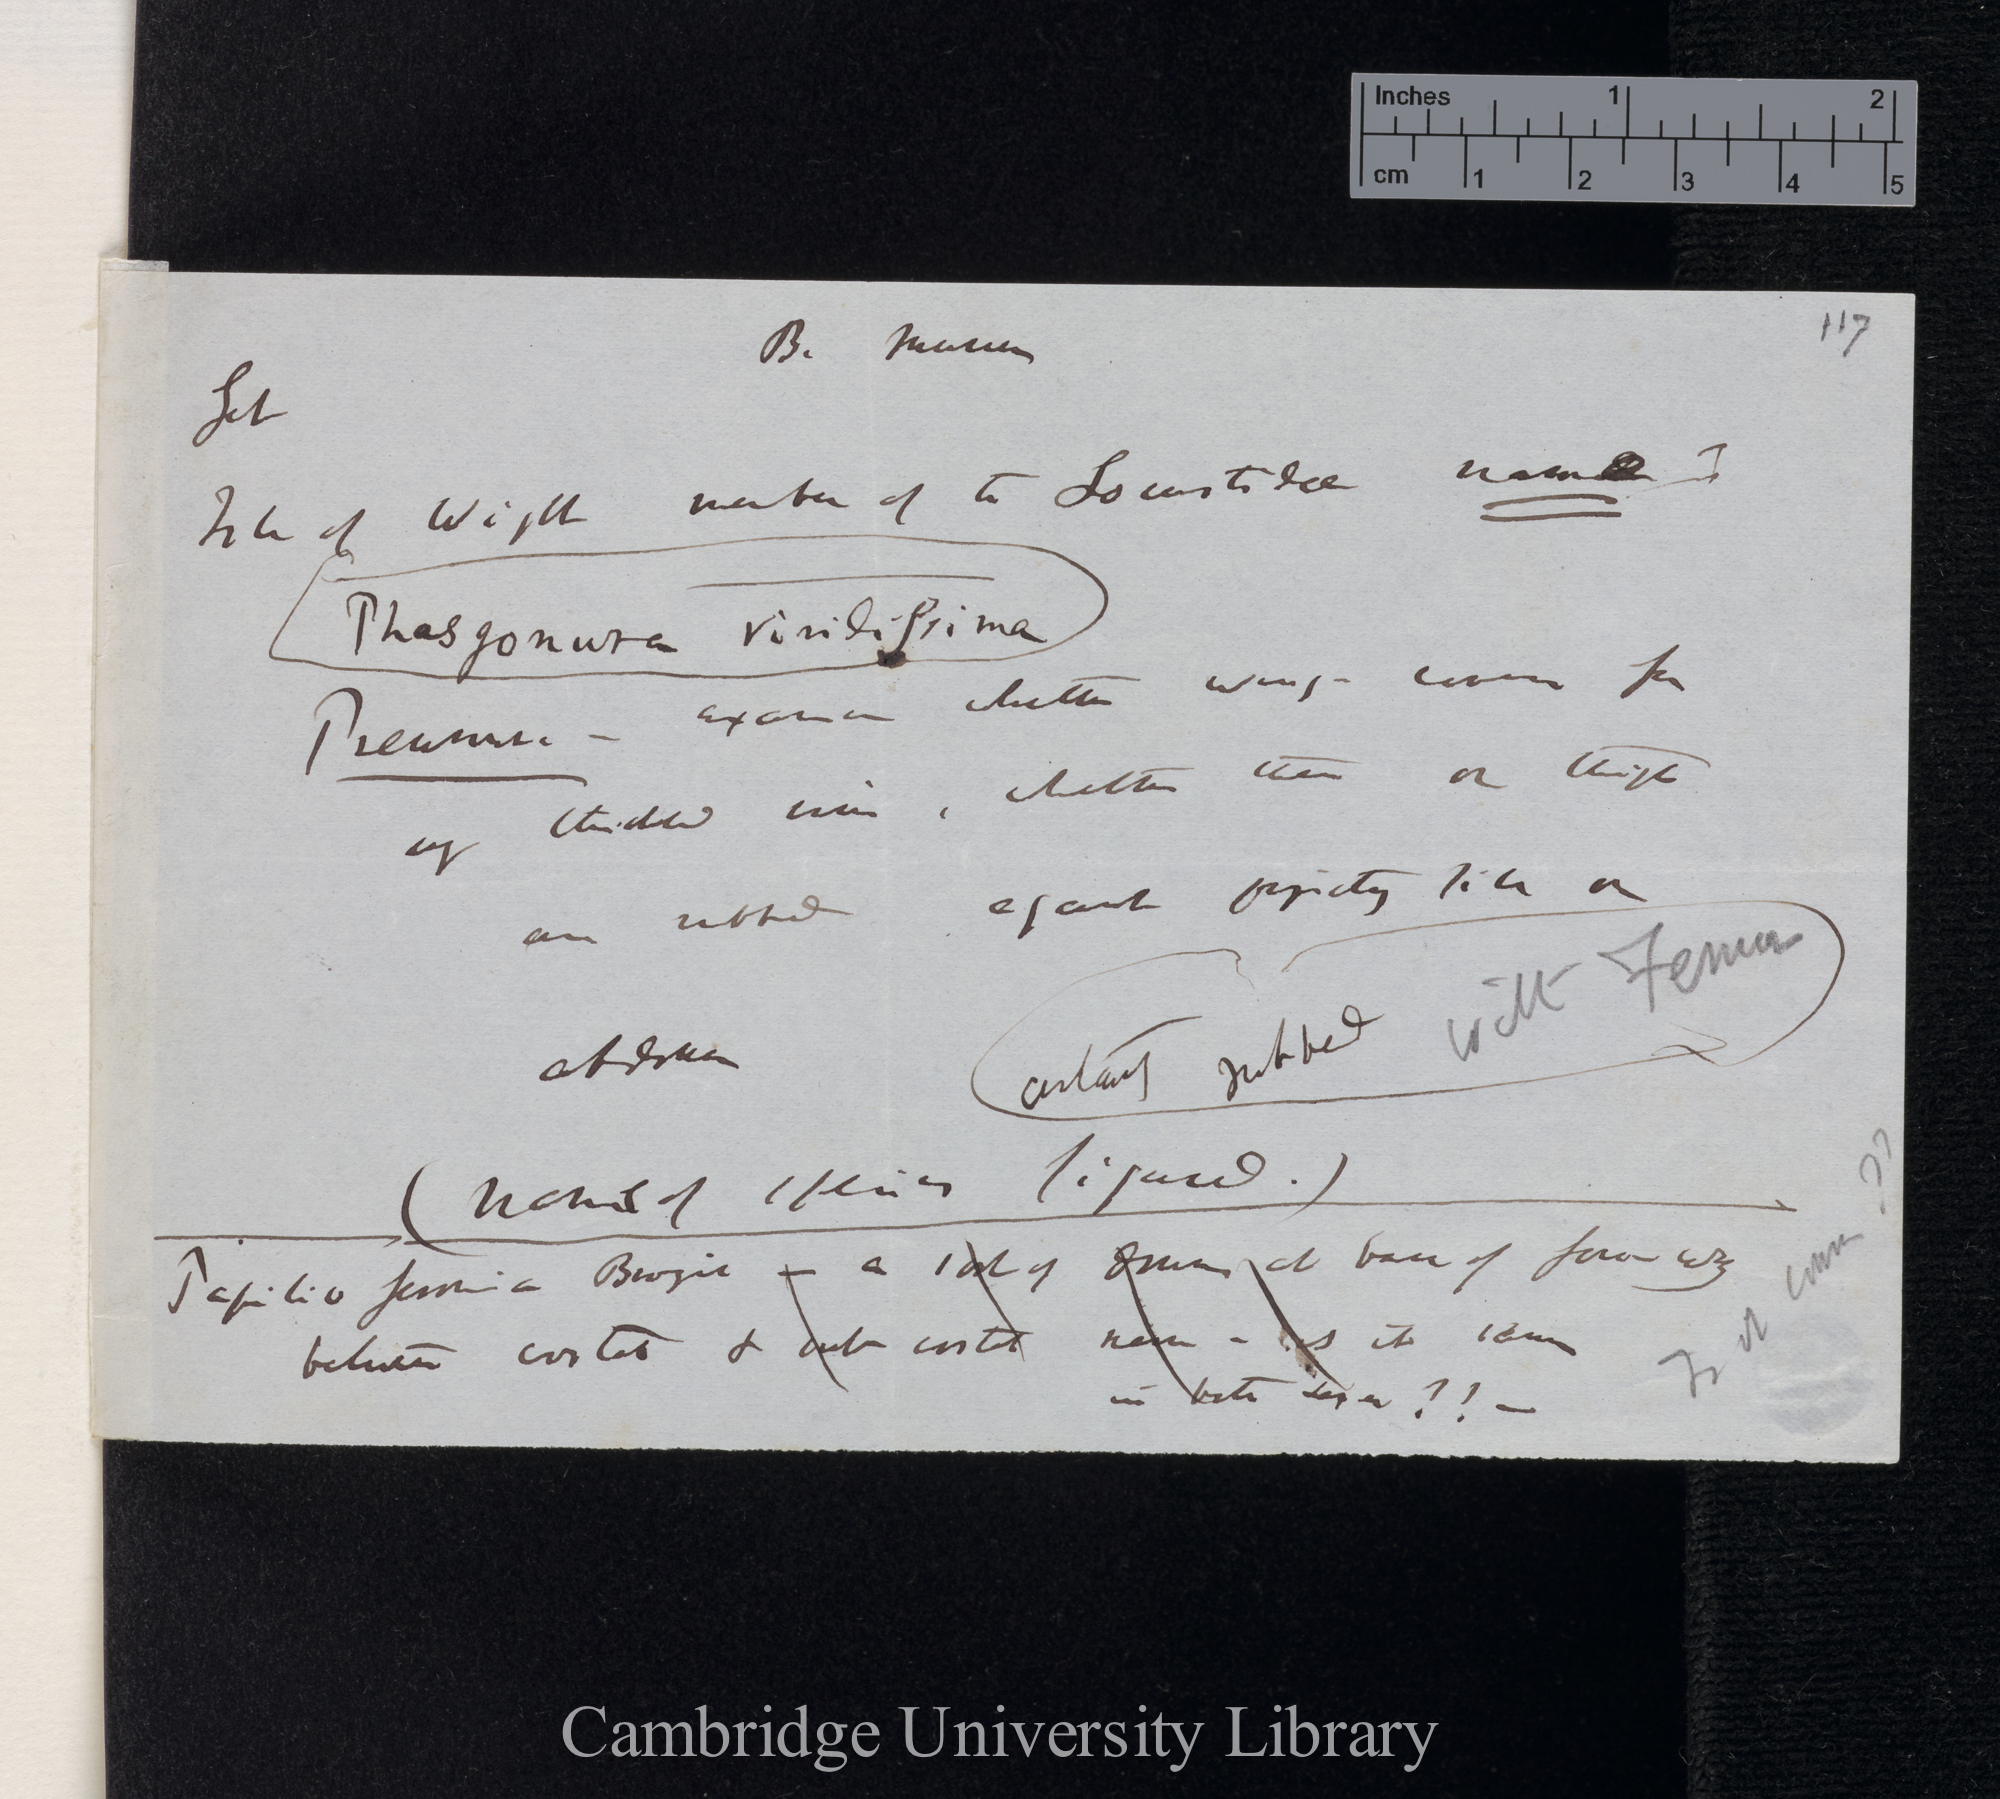 Inches 1 2
cm 1 2 3 4 5
117
B. Museum
Isle of Wight member of the Locustidae name
Phasgonura viridissima
Pneumora – examine whether wing-covers for
thickened , whether these or thighs
are rubbed against projecting like on
abdomen
certainly rubbed with Femur
(Name of species figured.)
Papilio – a of at base of fore wg
between costal & sub costal – is it same
in both sexes ?! –
Is it common ??
Cambridge University Library